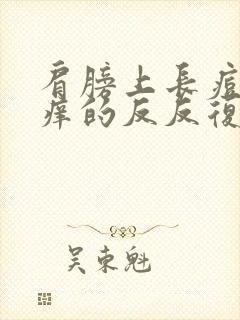 肩膀上長痘
痒的反反復
吴東魁